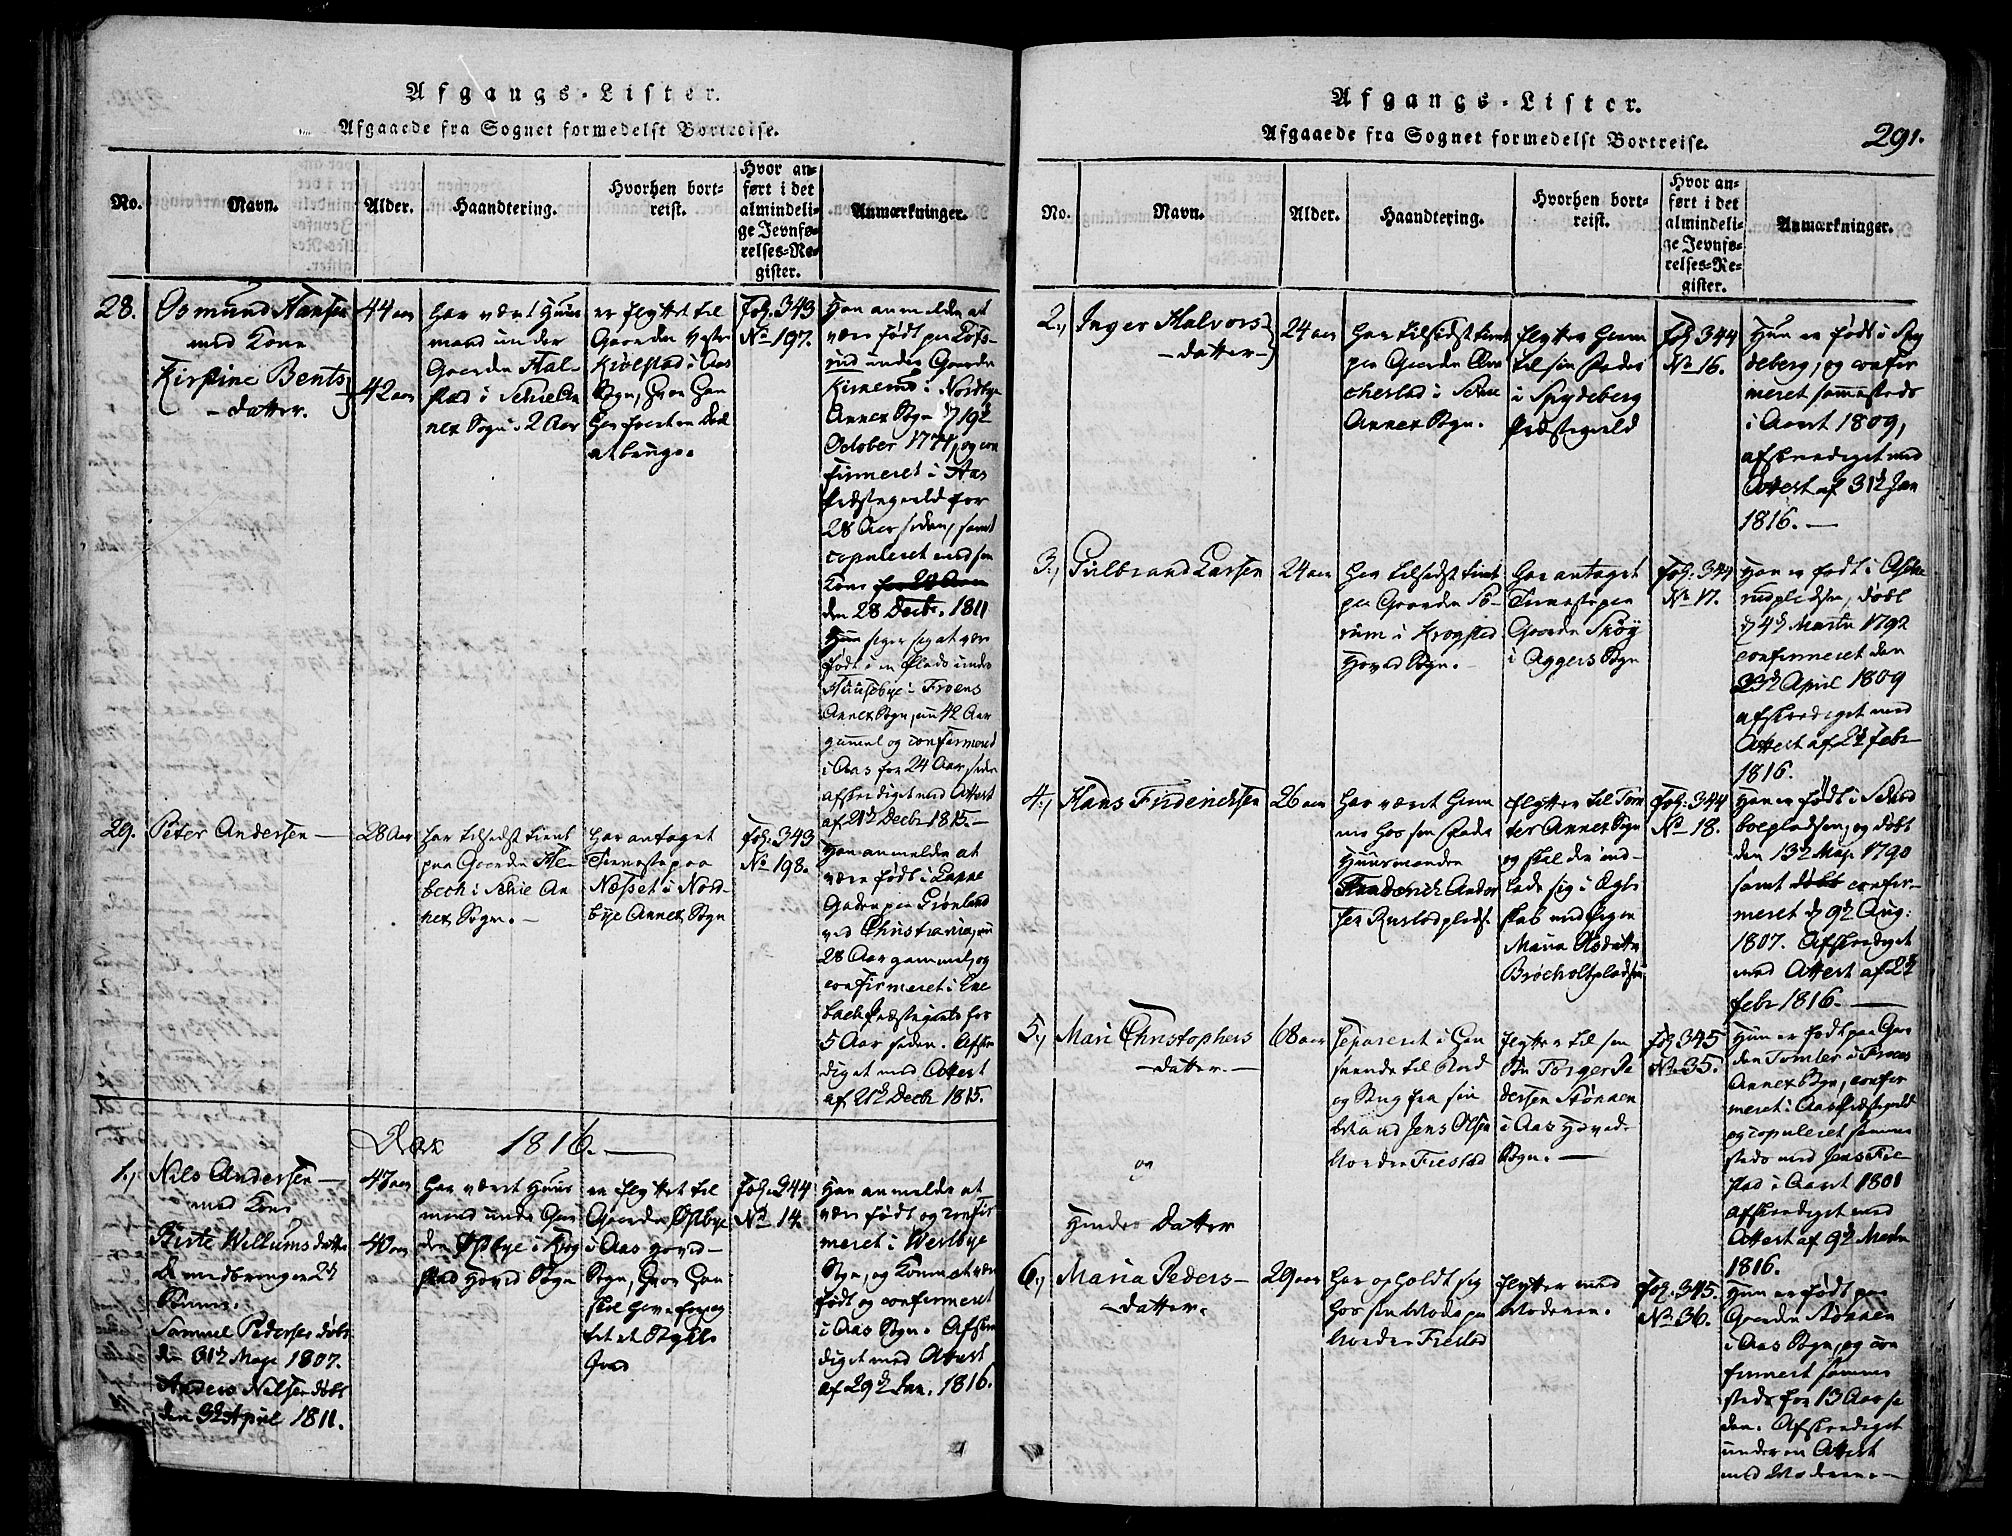 Afgangs-Lister.
Afgaaede fra Sognet formedelst Bortreise.
No.
Navn.
Alder.
Haandtering.
Hvorhen bort-
reist.
Hvor an-
ført i det
almindeli-
ge Jevnfø-
relses-Re-
gister.
Anmærkninger.
28.
Osmund Hansen
med Kone
Kirstine Bents-
datter.
44 aar
42 aar
har været Huus
mand under
Gaarden
stad i Schie An
nex Sogn i 2 Aar
er flyttet til
Gaarden Vestre
Kiølstad i Aas
Sogn, hvor han
har
Fol. 343
No 197.
Han anmelder at
være født paa
rud under Gaarden
i Nordbye
Annex Sogn d 19de
October 1771, og con
firmeret i Aas
Præstegield for
28 Aar siden, samt
copuleret med sin
Kone for 24 Aar
den 28 Decbr. 1811
Hun siger sig at være
født i en Plads under
Huusebye i Froens
Annex Sogn, nu 42 Aar
gammel og confirmered
i Aas for 24 Aar siden
afskediget med Attest
af 21de Decbr 1815.—
29.
Peter Andersen —
28 Aar
har tilsidst tient
paa Gaarden He-
bech i Schie An
nex Sogn.—
har antaget
Tieneste paa
Næsset i Nord-
bye Annex Sogn
Fol. 343
No 198.
Han anmelder at
være født i Lakke
Gaden paa Grønland
ved Christiania, nu
28 Aar gammel, og
confirmeret i Ene
bach Præstegield for
5 Aar siden. Afske
diget med Attest
af 21de Decbr 1815.
Aar 1816.—
1.,
Nils Andersen —
med Kone
Kirste Willumsdatter
de medbringer 2de
Sønner.
Samuel Pedersen døbt
den 31te Maj 1807.
Anders Nilsen døbt
den 3de April 1811.
47 aar
40 aar
har været Huus
mand under Gaar
den Østbye i Krog
stad Hoved Sogn
er flyttet til
Gaarden Østbye
i Aas Hoved-
Sogn, hvor han
skal have
tet et
Fol. 344
No 14.
Han anmelder at
være født og confir-
meret i Westbye
Sogn, og Konen at være
født og confirmeret
i Aas Sogn. Afske
diget med Attest
af 29de Jan. 1816.
Afgangs-Lister.
Afgaaede fra Sognet formedelst Bortreise.
291.
No.
Navn.
Alder.
Haandtering.
Hvorhen bort-
reist.
Hvor an-
ført i det
almindeli-
ge Jevnfø-
relses-Re-
gister.
Anmærkninger.
2.,
Inger Halvors-
datter—
24 aar
har tilsidst tient
paa Gaarden
cherstad i Schie
Annex Sogn.
flytter hiem
til sin Fader
i Spydeberg
Præstegield
Fol. 344
No 16.
Hun er født i Spy
deberg, og confir
meret sammesteds
i Aaret 1809,
afskediget med
Attest af 31te Jan
1816.—
3.,
Gulbrand Larsen
24 aar
har tilsidst tient
paa Gaarden Sø-
rum i Krogstad
Hoved Sogn.—
har antaget
Tieneste paa
Gaarden Skøy
i Aggers Sogn
Fol. 344
No 17.
Han er født i
rudpladsen, døbt
d 4de Martii 1792
confirmeret den
23de April 1809
afskediget med
Attest af 2de Febr
1816.
4.,
Hans Friderichsen
26 aar
har været hiem
me hos sin Fader
Huusmanden
Frederich Ander
sen Rustadpladsen
flytter til Tom
ter Annex Sogn
og skal der ind-
lade sig i Ægte
skab med Pigen
Maria Olsdatter
Brøcholtpladsen
Fol. 344
No 18.
Han er født i
boepladsen, og døbt
den 13de Maji 1790
samt døbt confir-
meret d 9de Aug:
1807. Afskediget
med Attest af 2de
Febr 1816.—
5.,
Mari Christophers
datter.—
og
Hendes Datter
68 aar
Separeret i Hen
seende til Bord
og Seng fra sin
Mand Jens Olsen
Nordre Frestad
flytter til sin
Søn Torger Pe
dersen Stønnen
i Aas Hoved
Sogn.—
Fol. 345
No 35.
Hun er født paa Gaar
den Tomter i Froens
Annex Sogn, confir
meret i Aas Præstegield
og copuleret sammes
steds med Jens Fre-
stad i Aaret 1801
afskediget med
Attest af 9de Martii
1816.
6.,
Maria Peders-
datter.
29 aar
har opholdt sig
hos sin Moder paa
Nordre Frestad
flytter med
Moderen.
Fol. 345.
No 36.
Hun er født paa
Gaarden Stønnen
i Aas Sogn, og con
firmert sammes
steds for 13 Aar si
den. Afskediget
under en Attest
med Moderen.—